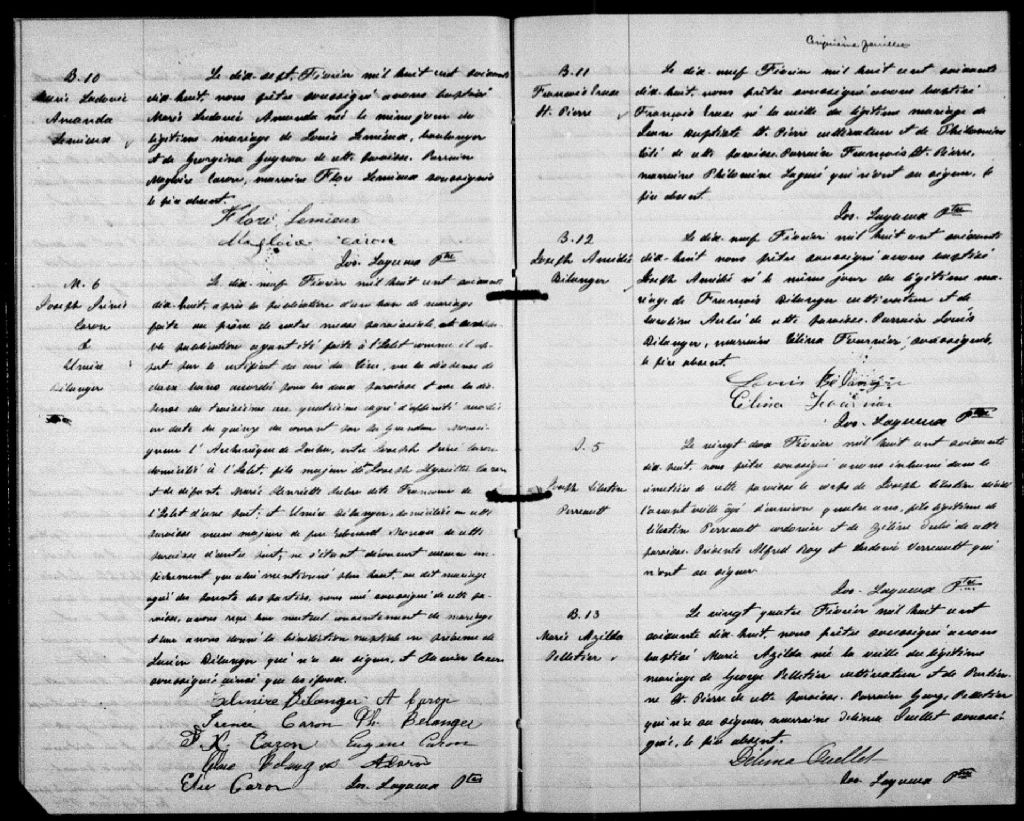 B. 10
Marie Ludovic
Amanda
Lemieux
Le dix-sept Février mil huit cent soixante
dix-huit, nous prêtre soussigné avons baptisé
Marie Ludovic Amanda né le même jour du
légitime mariage de Louis Lemieux, boulanger
et de Georgina Guyon de cette paroisse. Parrain
Magloire Caron, marraine Flore Lemieux soussignés
le père absent.
Flore Lemieux
Magloire Caron
Jos. Lagueux Ptre
M. 6
Joseph Irénée
Caron
&
Elmire
Bélanger
Le dix-neuf Février mil huit cent soixante
dix-huit, après la publication d'un ban de mariage
faite au prône de notre messe paroissiale, et
publication ayant été faite à l'Islet comme il
par le certificat du curé du lieu, vu la dispense de
deux bans accordée pour les deux paroisses et vu la dis-
pense du troisième au quatrième degré d'affinité accordée
en date du quinze du courant par Sa Grandeur Monsei-
gneur l'Archevêque de Québec, entre Joseph Irénée Caron
domicilié à l'Islet, fils majeur de Joseph Caron
et de défunte Marie Henriette dite Francoeur de
l'Islet d'une part; et Elmire Bélanger domiciliée en cette
paroisse veuve majeure de feu de cette
paroisse d'autre part; ne s'étant découvert aucun em-
pêchement que celui mentionné plus haut, au dit mariage
agré des parents des parties, nous curé soussigné de cette pa-
roisse, avons reçu leur mutuel consentement de mariage
et leur avons donné la bénédiction nuptiale en présence de
Lucien Bélanger qui n'a su signer, et Caron
soussigné ainsi que les époux.
Elmire Bélanger
Irénée Caron Ph. Belanger
F. X. Caron Eugene Caron
Belanger A Caron
Elie Caron Jos. Lagueux Ptre
Cinquième feuillet
B. 11
François
St. Pierre
Le dix-neuf Février mil huit cent soixante
dix-huit, nous prêtre soussigné avons baptisé
François né la veille du légitime mariage de
Jean Baptiste St. Pierre cultivateur et de Philomène
de cette paroisse. Parrain François St. Pierre,
marraine Philomène qui n'ont su signer, le
père absent.
Jos. Lagueux Ptre
B. 12
Joseph Amédé
Bélanger
Le dix-neuf Février mil huit cent soixante
dix-huit nous prêtre soussigné avons baptisé
Joseph Amédé né le même jour du légitime ma-
riage de François Bélanger cultivateur et de
Caroline de cette paroisse. Parrain Louis
Bélanger, marraine Célina Fournier, soussignés,
le père absent.
Louis Bélanger
Célina Fournier
Jos. Lagueux Ptre
S. 5
Joseph Célestin
Perreault
Le vingt deux Février mil huit cent soixante
dix-huit, nous prêtre soussigné avons inhumé dans le
cimetière de cette paroisse le corps de Joseph Célestin décédé
l'avant veille âgé d'environ quatre ans, fils légitime de
Célestin Perreault cordonnier et de Zéline de cette
paroisse. Présents Alfred Roy et Ludovic Verreault qui
n'ont su signer
Jos. Lagueux Ptre
B. 13
Marie Azilda
Pelletier
Le vingt quatre Février mil huit cent
soixante dix-huit, nous prêtre soussigné avons
baptisé Marie Azilda née la veille du légitime
mariage de George Pelletier cultivateur et de
St. Pierre de cette paroisse. Parrain George Pelletier
qui n'a su signer, marraine Délima Ouellet soussi-
gné, le père absent.
Délima Ouellet
Jos. Lagueux Ptre